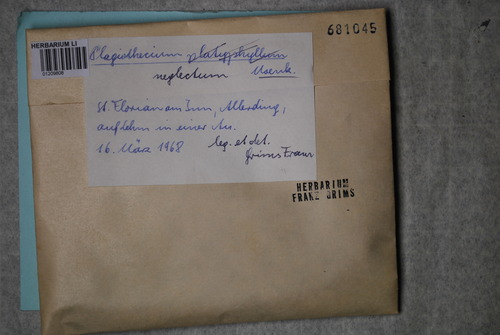 681045
HERBARIUM LI
01209808
Plagiothecium platyphyllum
neglectum Moenk.
St. Florian am Inn, Allerding,
auf Lehm in einer Au.
16. März 1968 leg. et det.
Grims Franz
HERBARIUM
FRANZ GRIMS